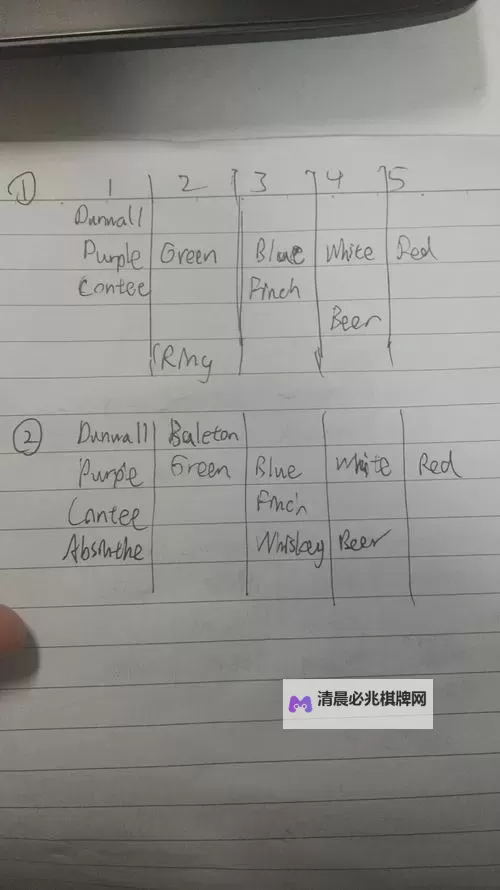 ① 1 2 3 4 5
Dunwall
Purple Green Blue White Red
Contee Finch
Beer
Ring
② Dunwall Baleton
Purple Green Blue White Red
Contee Finch
Absinthe Whiskey Beer
清晨必兆棋牌网